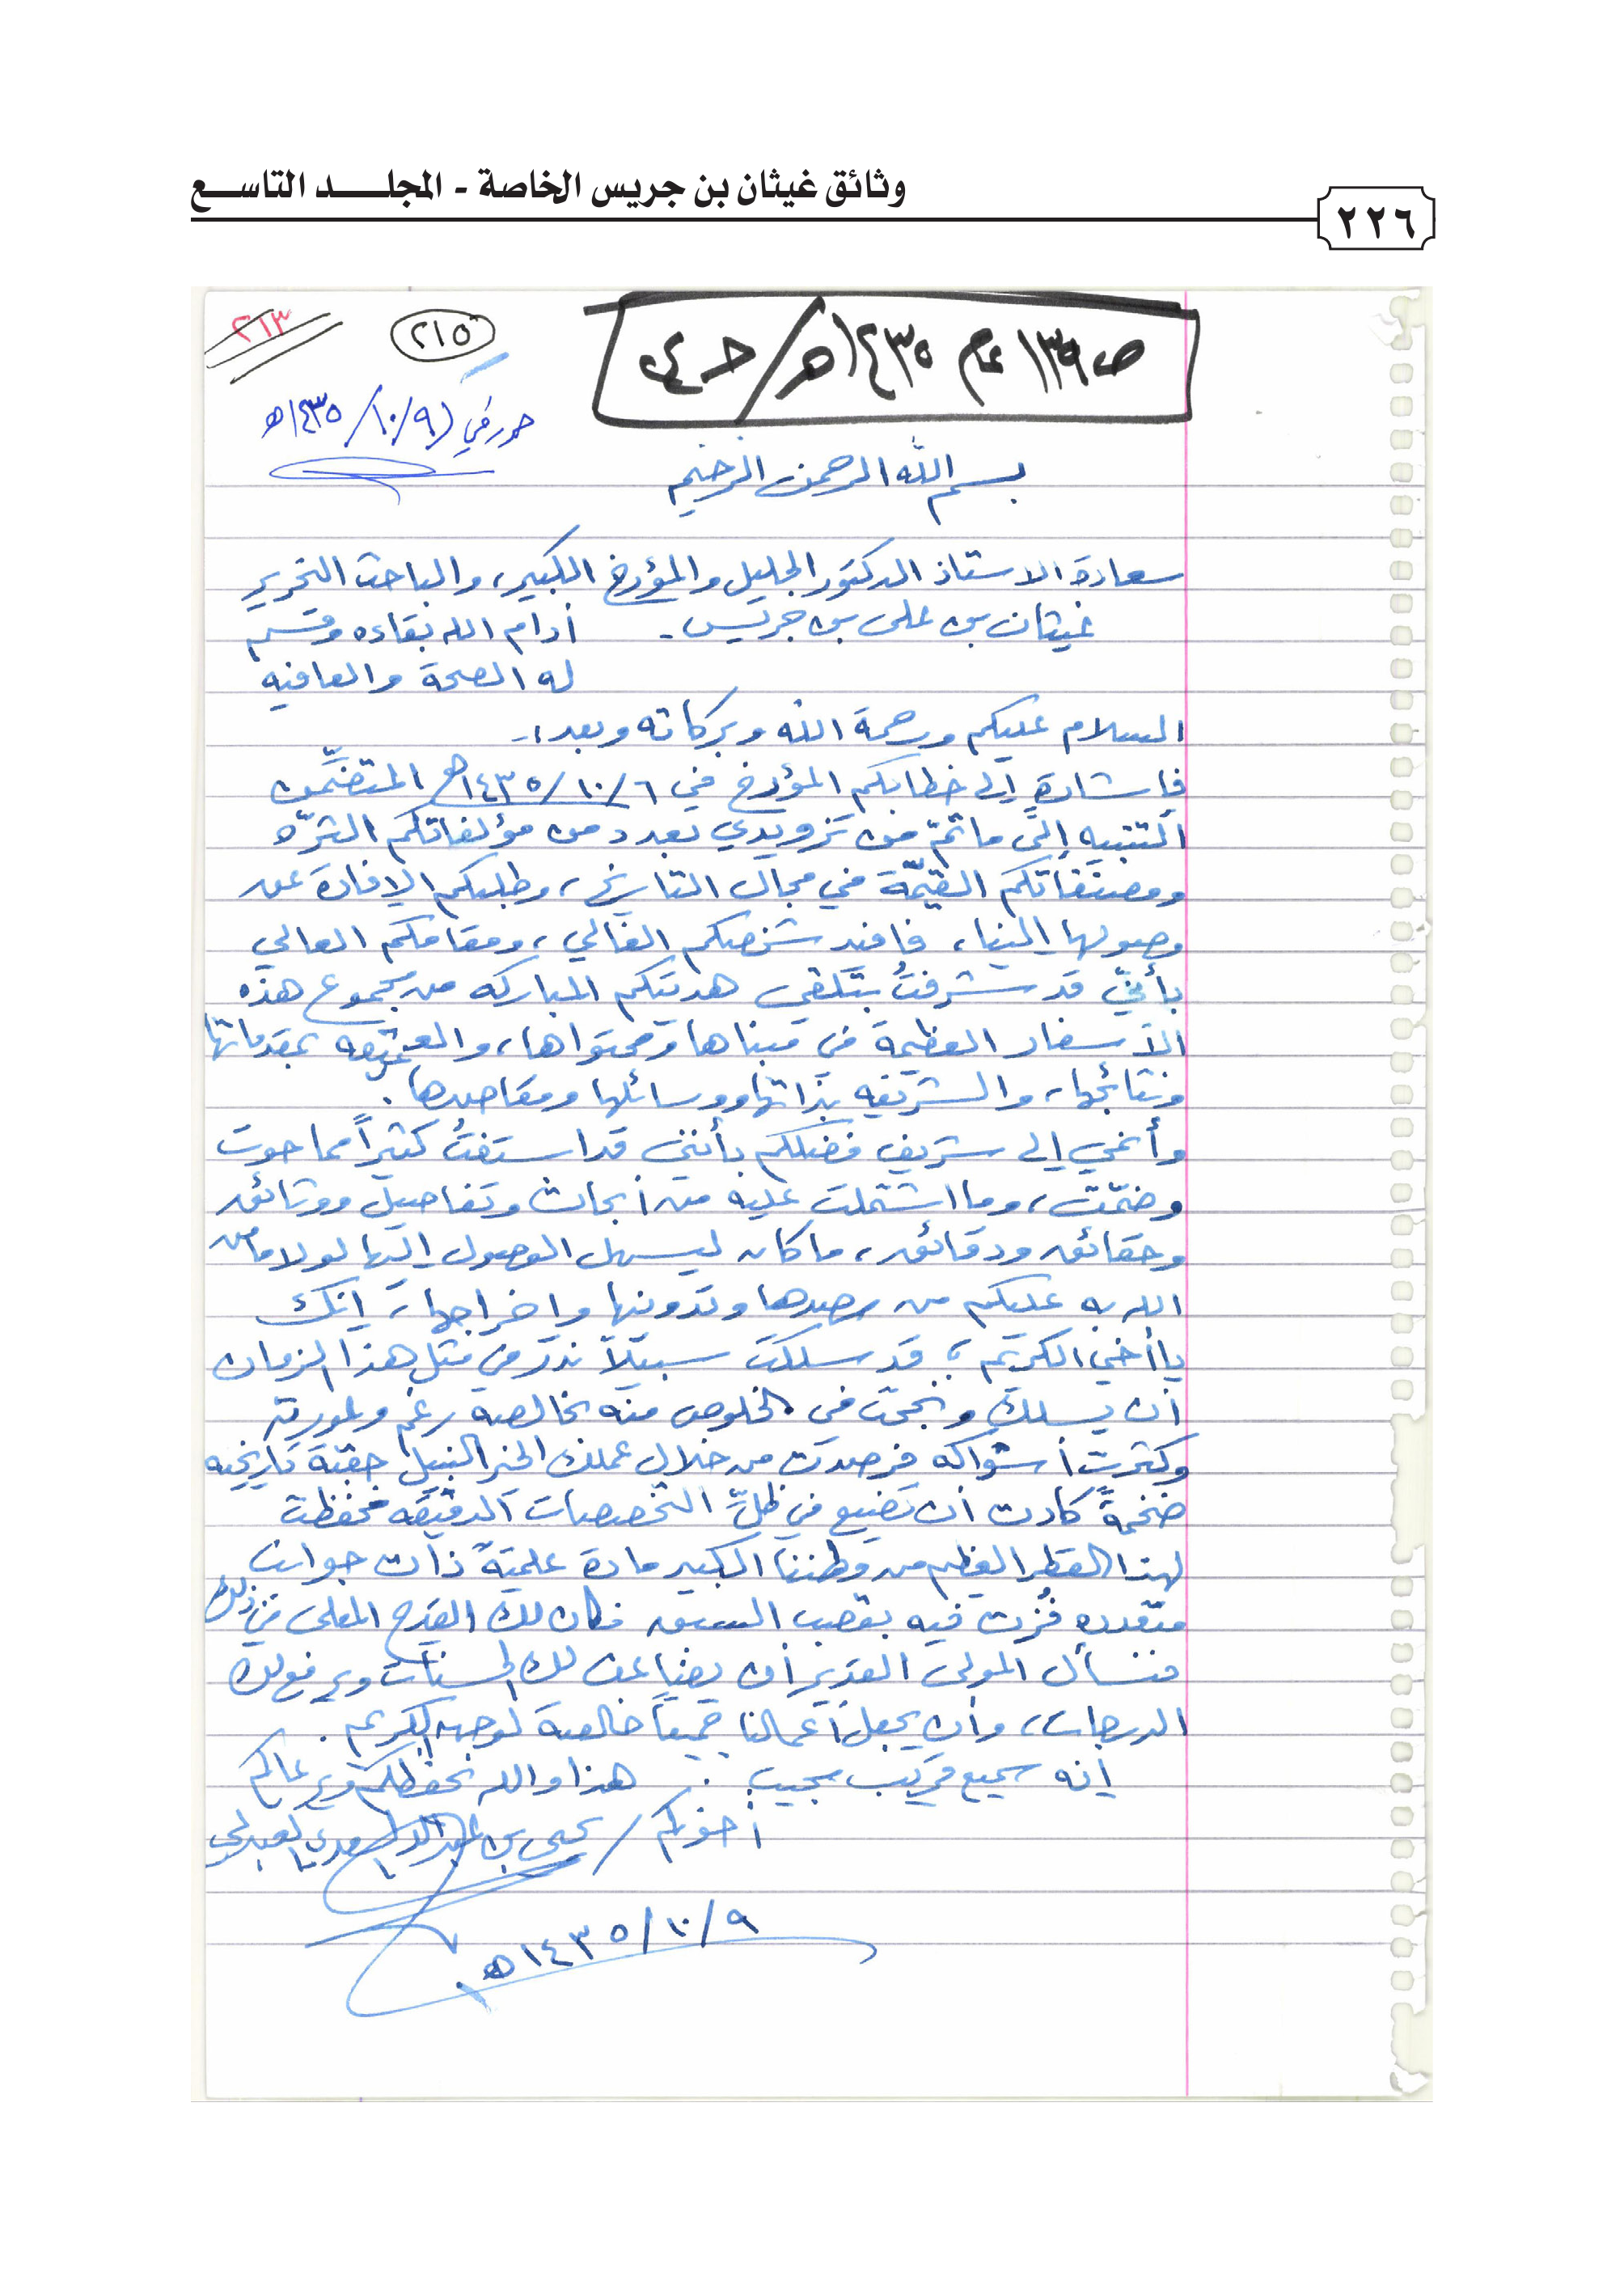 وثائق غيثان بن جريس الخاصة - المجلـــــد التاســـع
٢٢٦
ص ١٣٩ عام ١٤٣٥هـ / حـ ٤
٢١٥
٢١٣
حرر في ٩/١٠/١٤٣٥هـ
بسم الله الرحمن الرحيم
سعادة الاستاذ الدكتور الجليل والمؤرخ الكبير، والباحث النحرير
غيثان بن على بن جريس - أدام الله بقاءه وقسم
له الصحة والعافيه
السلام عليكم ورحمة الله وبركاته وبعد:-
فإشارةً إلى خطابكم المؤرخ في ٦/١٠/١٤٣٥هـ المتضمِّن
التنبيه إلى ما تمّ من تزويدي بعدد من مؤلفاتكم الثرّه
ومصنفاتكم القيّمة في مجال التاريخ، وطلبكم الإفادة عن
وصولها إلينا، فافيد شخصكم الغالي، ومقامكم العالي
بأنيّ قد شرفتُ بتلقي هديتكم المباركه من مجموع هذه
الأسفار العظيمة في مبناها ومحتواها، والعميقه بمقدماتها
ونتائجها، والشريفه بذاتها ووسائلها ومقاصدها.
وأنهي إلى شريف فضلكم بأنني قد استفتُ كثيراً مما حوت
وضمّت، وما اشتملت عليه من أبحاث وتفاصيل ووثائق
وحقائق ودقائق، ما كان ليسهل الوصول إليها لولا ما منّ
الله به عليكم من رصدها وتدوينها وإخراجها، إنك
يا أخي الكريم؛ قد سلكت سبيلاً ندر في مثل هذا الزمان
أن يسلك ونجحت في الخلوص منه بخالصه رغم وعورته
وكثرت أشواكه فرصدت من خلال عملك الخيّر النبيل حقبة تاريخيه
ضخمةً كادت أن تضيع في ظلّ التخصصات الدقيقه فحفظت
لهذا القطر العظيم من وطننا الكبير مادة علميّةً ذات جوانب
متعدده فُزت فيه بقصب السبق فكان لك القدح المعلى في ذلك
فنسأل المولى القدير أن يضاعف لك الحسنات ويرفع لك
الدرجات، وأن يجعل أعمالنا جميعاً خالصة لوجهه الكريم.
إنه سميع قريب مجيب. هذا والله يحفظكم ويرعاكم
أخوكم / يحيى بن
٩/١٠/١٤٣٥هـ